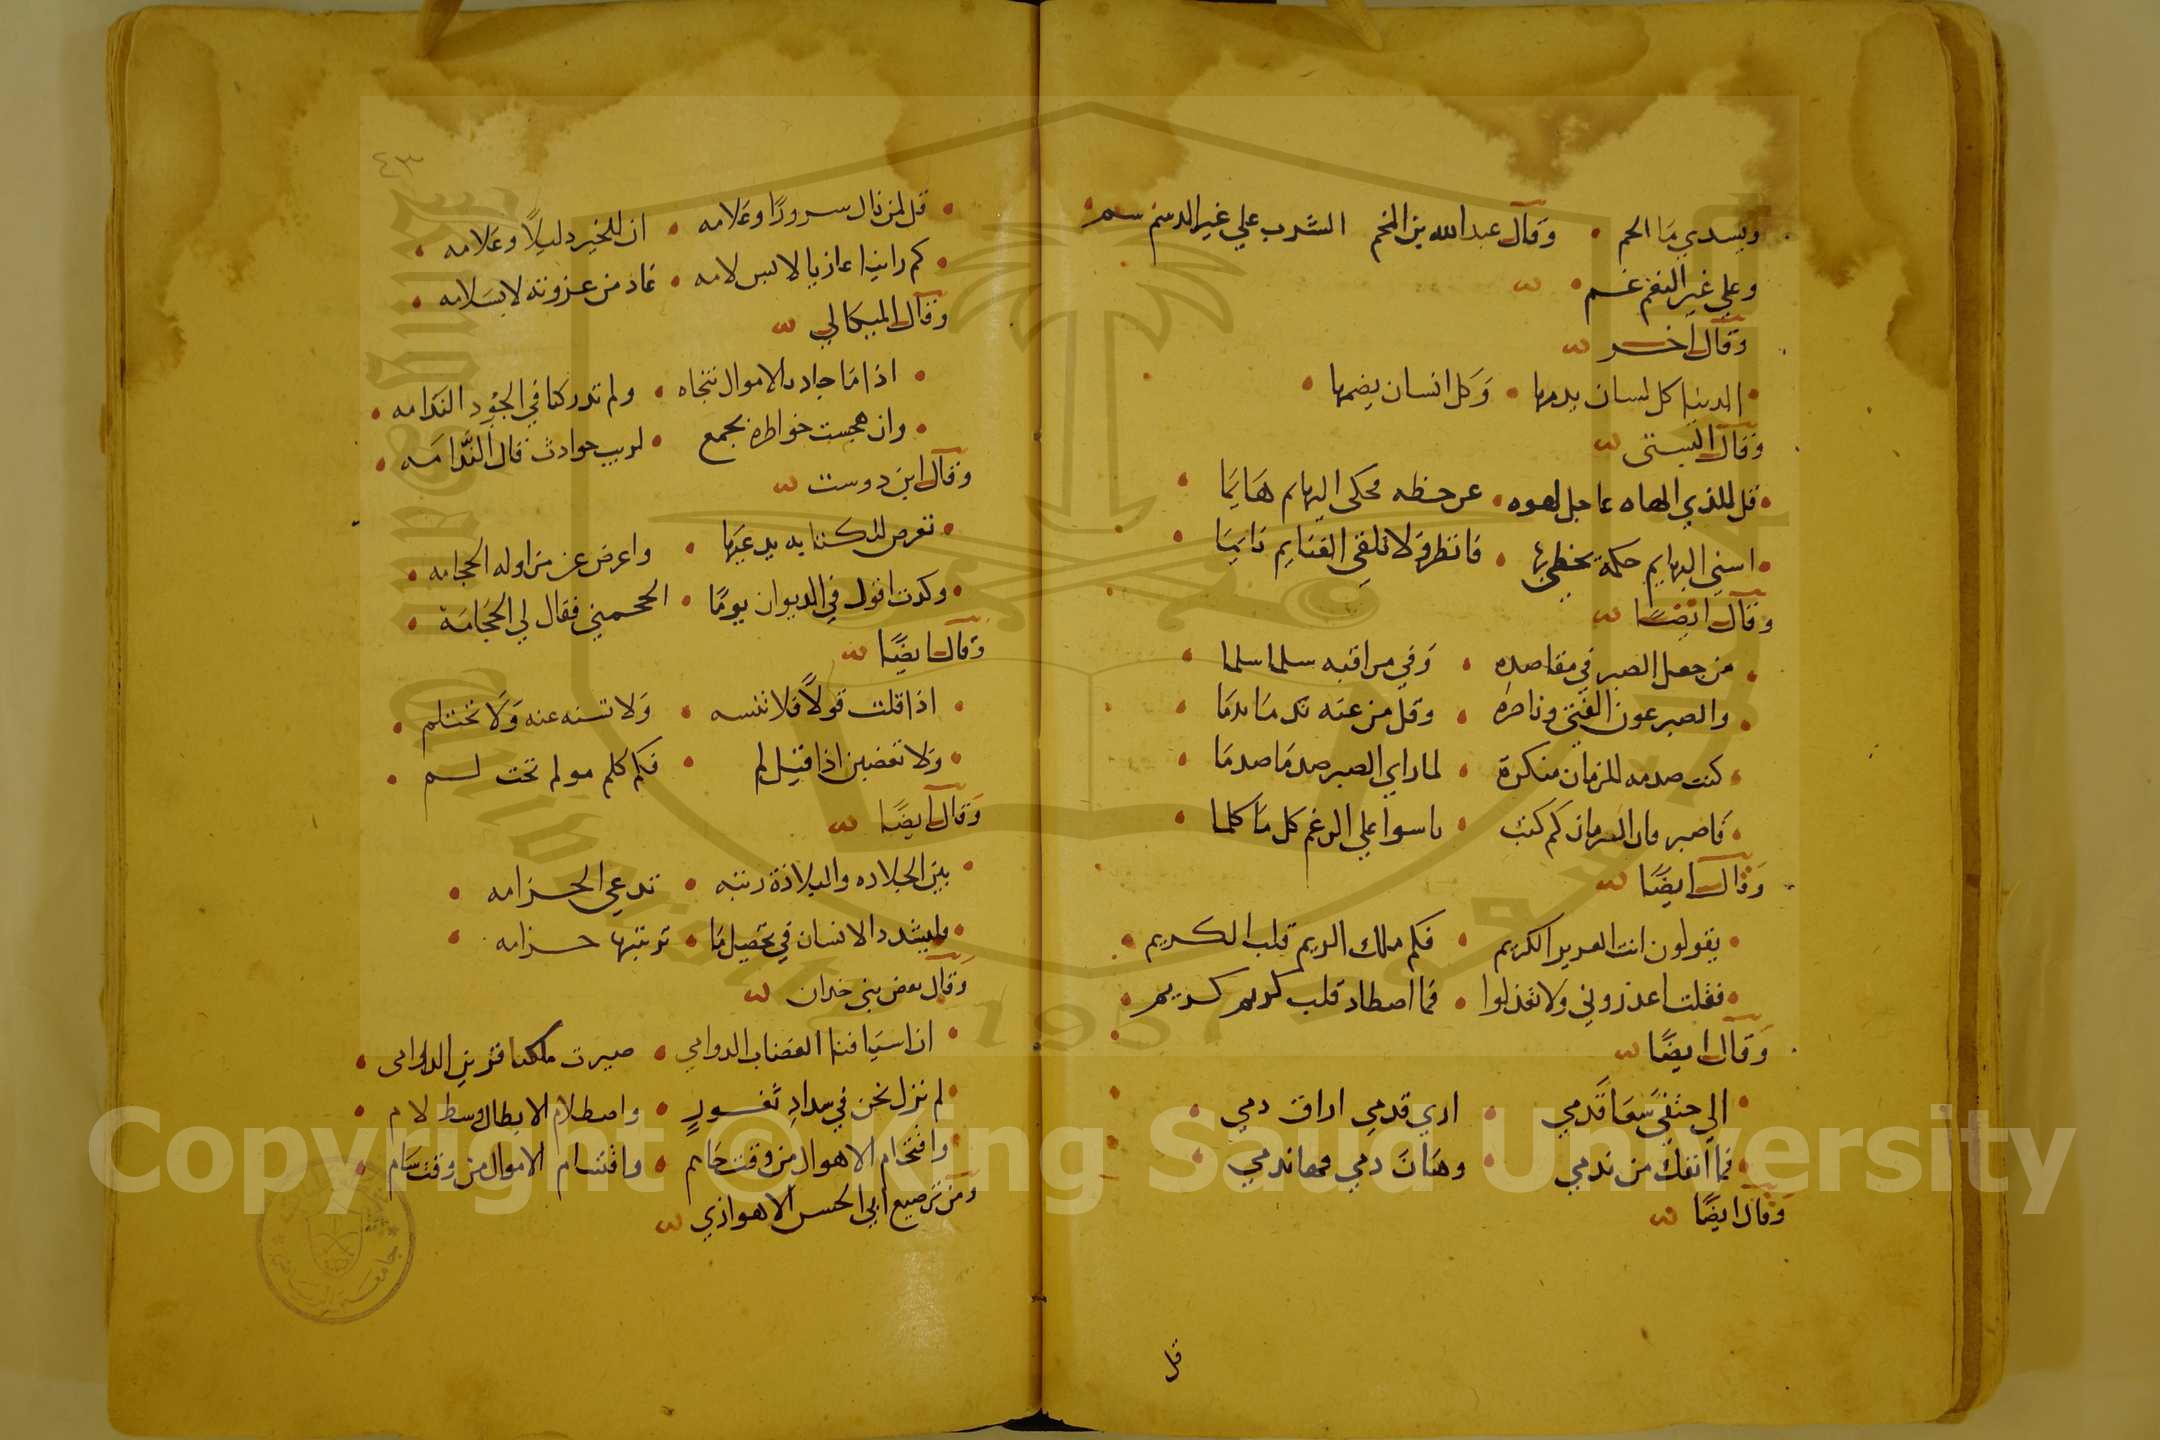 ويسدي ما الحم • وقال عبد الله بن المخم الشرب علي غير الدسم سم
وعلي غير النغم غم •
وقال آخر
• الدنيا كل لسان يدمها • وكل انسان يضمها •
وقال البستى
• قل للذي الهاه عاجل لهوه • عن حظه محكى البهايم هايما •
• اسني البهايم حكمة تحظي بها • فانظر فلا تلقي الغنايم نايما •
وقال ايضا
• من جعل الصبر في مقاصده • وفي مراقيه سلما سلما •
• والصبر عون الفتى وناصره • وقل من عنه ندما ندما •
• كنت صدمه للزمان منكرة • لما راي الصبر صدما صدما •
• فاصبر فان الزمان كم كنت • ياسوا علي الرغم كل ما كلما •
وقال ايضا
• يقولون انت العزيز الكريم • فكم ملك الريم قلب الكريم •
• فقلت اعذروني ولا تعذلوا • فما اصطاد قلب كريم كريم •
وقال ايضا
• الي حتفي سعا قدمي • اري قدمي اراق دمي •
• فما انفك من ندمي • وهان دمي فها ندمي •
وقال ايضا
قل
٤٣
• قل لمن نال سرورا وعلامه • ان للخير دليلا وعلامه •
• كم راينا عازيا لابس لامه • عاد من غزوته لا بسلامه •
وقال الميكالي
• اذا ما جاد بالاموال نتجاه • ولم تدركنا في الجود الندامه •
• وان هجست خواطره بجمع • لريب حوادث قال الندامه •
وقال ابن دوست
• تعرض للكتابه يدعيها • واعرض عن مزاوله الحجامه •
• وكدت اقول في الديوان يوما • الحجمني فقال لي الحجامة •
وقال ايضا
• اذا قلت قولا فلا تنسه • ولا تسنه عنه ولا تختلم •
• ولا تغضبن اذا قيل لم • فكم كلم مولم تحت لم •
وقال ايضا
• بين الجلاده والبلادة رتبه • تدعي الحزامه •
• وليشدد الانسان في تحصيل ما • ترتيبها حزامه •
وقال بعض بني حمدان
• ان اسيافنا العضاب الدوامي • صيرت ملكنا قرين الدوامى •
• لم نزل نحن في سداد ثغور • واصطلام الابطال وسط لام •
• واقتحام الاهوال من وقت حام • واقتسام الاموال من وقت سام •
ومن ترصيع ابي الحسن الاهوازي
Copyright © King Saud University
King Saud University
1957